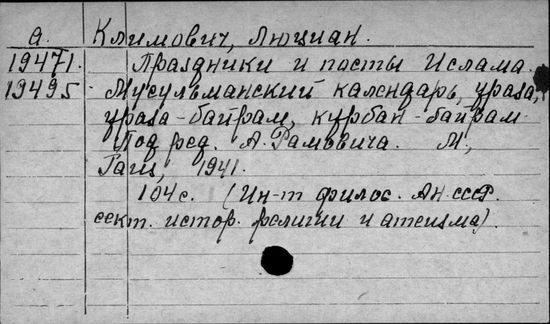 а. Климович, Люциан.
19471. Праздники и посты Ислама.
19495 Мусульманский календарь, ураза,
ураза-байрам, курбан-байрам.
Под ред. А. Рамовича. М.,
Гаиз, 1941.
104 с. (Ин-т филос. Ан. СССР.
сект. истор. религии и атеизма).